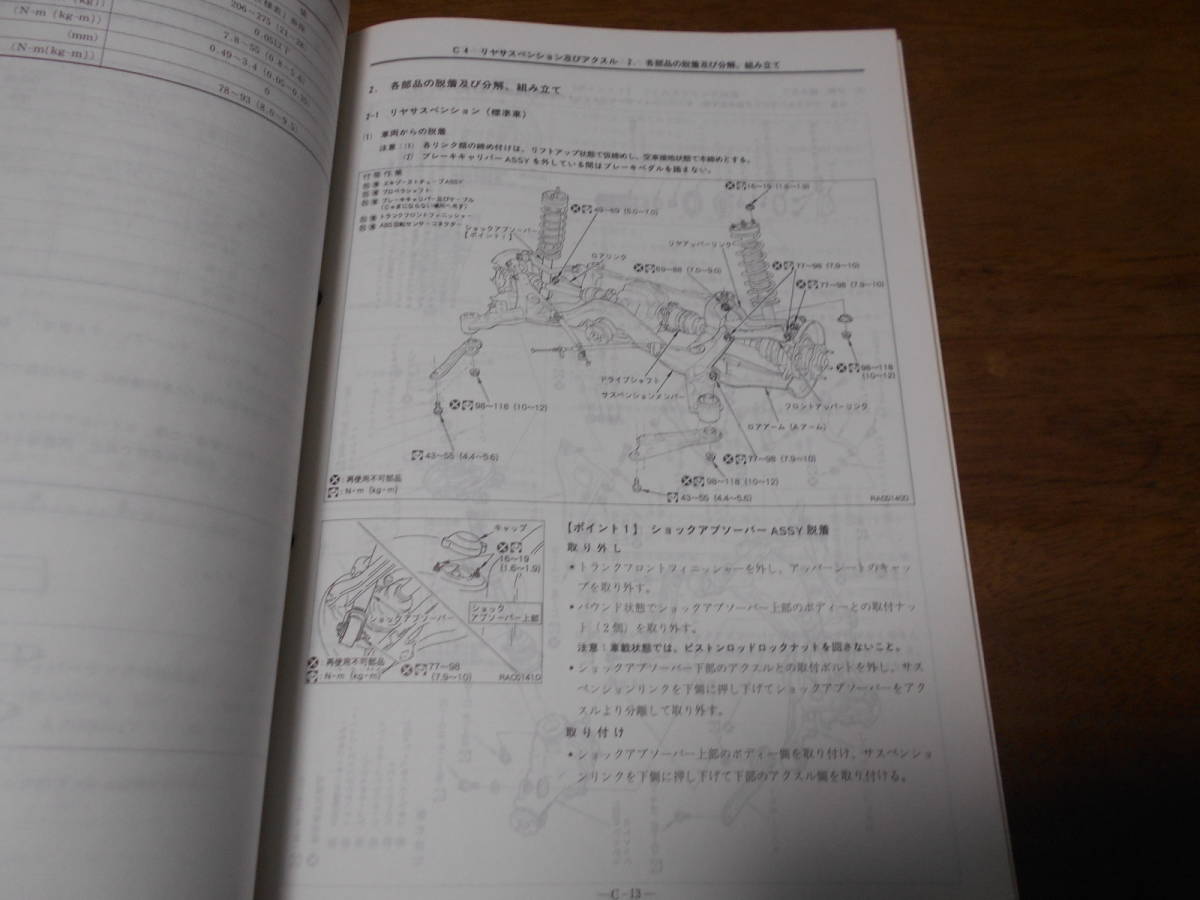 (N-m (kg-m))
206~275 (21~28)
0.05以下
(mm)
7.8~55 (0.8~5.6)
(N-m(kg-m))
0.49~3.4 (0.05~0.35)
0
78~93 (8.0~9.5)
C4 リヤサスペンション及びアクスル 2. 各部品の脱着及び分解、組み立て
2. 各部品の脱着及び分解、組み立て
2-1 リヤサスペンション (標準車)
(1) 車両からの脱着
注意:(1) 各リンク類の締め付けは、リフトアップ状態で仮締めし、空車接地状態で本締めとする。
(2) ブレーキキャリパーASSYを外している間はブレーキペダルを踏まない。
付帯作業
エキゾーストチューブASSY
プロペラシャフト
ブレーキキャリパー及びケーブル
(じゃまにならない場所へ吊す)
トランクフロントフィニッシャー
ABS回転センサーコネクター
ショックアブソーバー
【ポイント1】
49~69 (5.0~7.0)
16~19 (1.6~1.9)
ロアリンク
リヤアッパーリンク
69~88 (7.0~9.0)
77~98 (7.9~10)
77~98 (7.9~10)
98~118
(10~12)
ドライブシャフト
サスペンションメンバー
フロントアッパーリンク
ロアアーム (Aアーム)
98~118 (10~12)
43~55 (4.4~5.6)
77~98 (7.9~10)
98~118 (10~12)
43~55 (4.4~5.6)
:再使用不可部品
:N-m (kg-m)
RAC0140D
キャップ
16~19
(1.6~1.9)
ショック
アブソーバー上部
ショックアブソーバー
:再使用不可部品
:N-m (kg-m)
77~98
(7.9~10)
RAC0141D
【ポイント1】 ショックアブソーバーASSY脱着
取り外し
●トランクフロントフィニッシャーを外し、アッパーシートのキャッ
プを取り外す。
●バウンド状態でショックアブソーバー上部のボディーとの取付ナッ
ト (2個) を取り外す。
注意:車載状態では、ピストンロッドロックナットを回さないこと。
●ショックアブソーバー下部のアクスルとの取付ボルトを外し、サス
ペンションリンクを下側に押し下げてショックアブソーバーをアク
スルより分離して取り外す。
取り付け
●ショックアブソーバー上部のボディー側を取り付け、サスペンショ
ンリンクを下側に押し下げて下部のアクスル側を取り付ける。
—C-13—